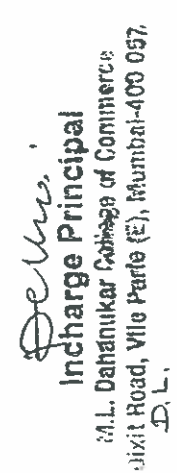 Incharge Principal
M.L. Dahanukar College of Commerce
Dixit Road, Vile Parle (E), Mumbai-400 057.
D.L.